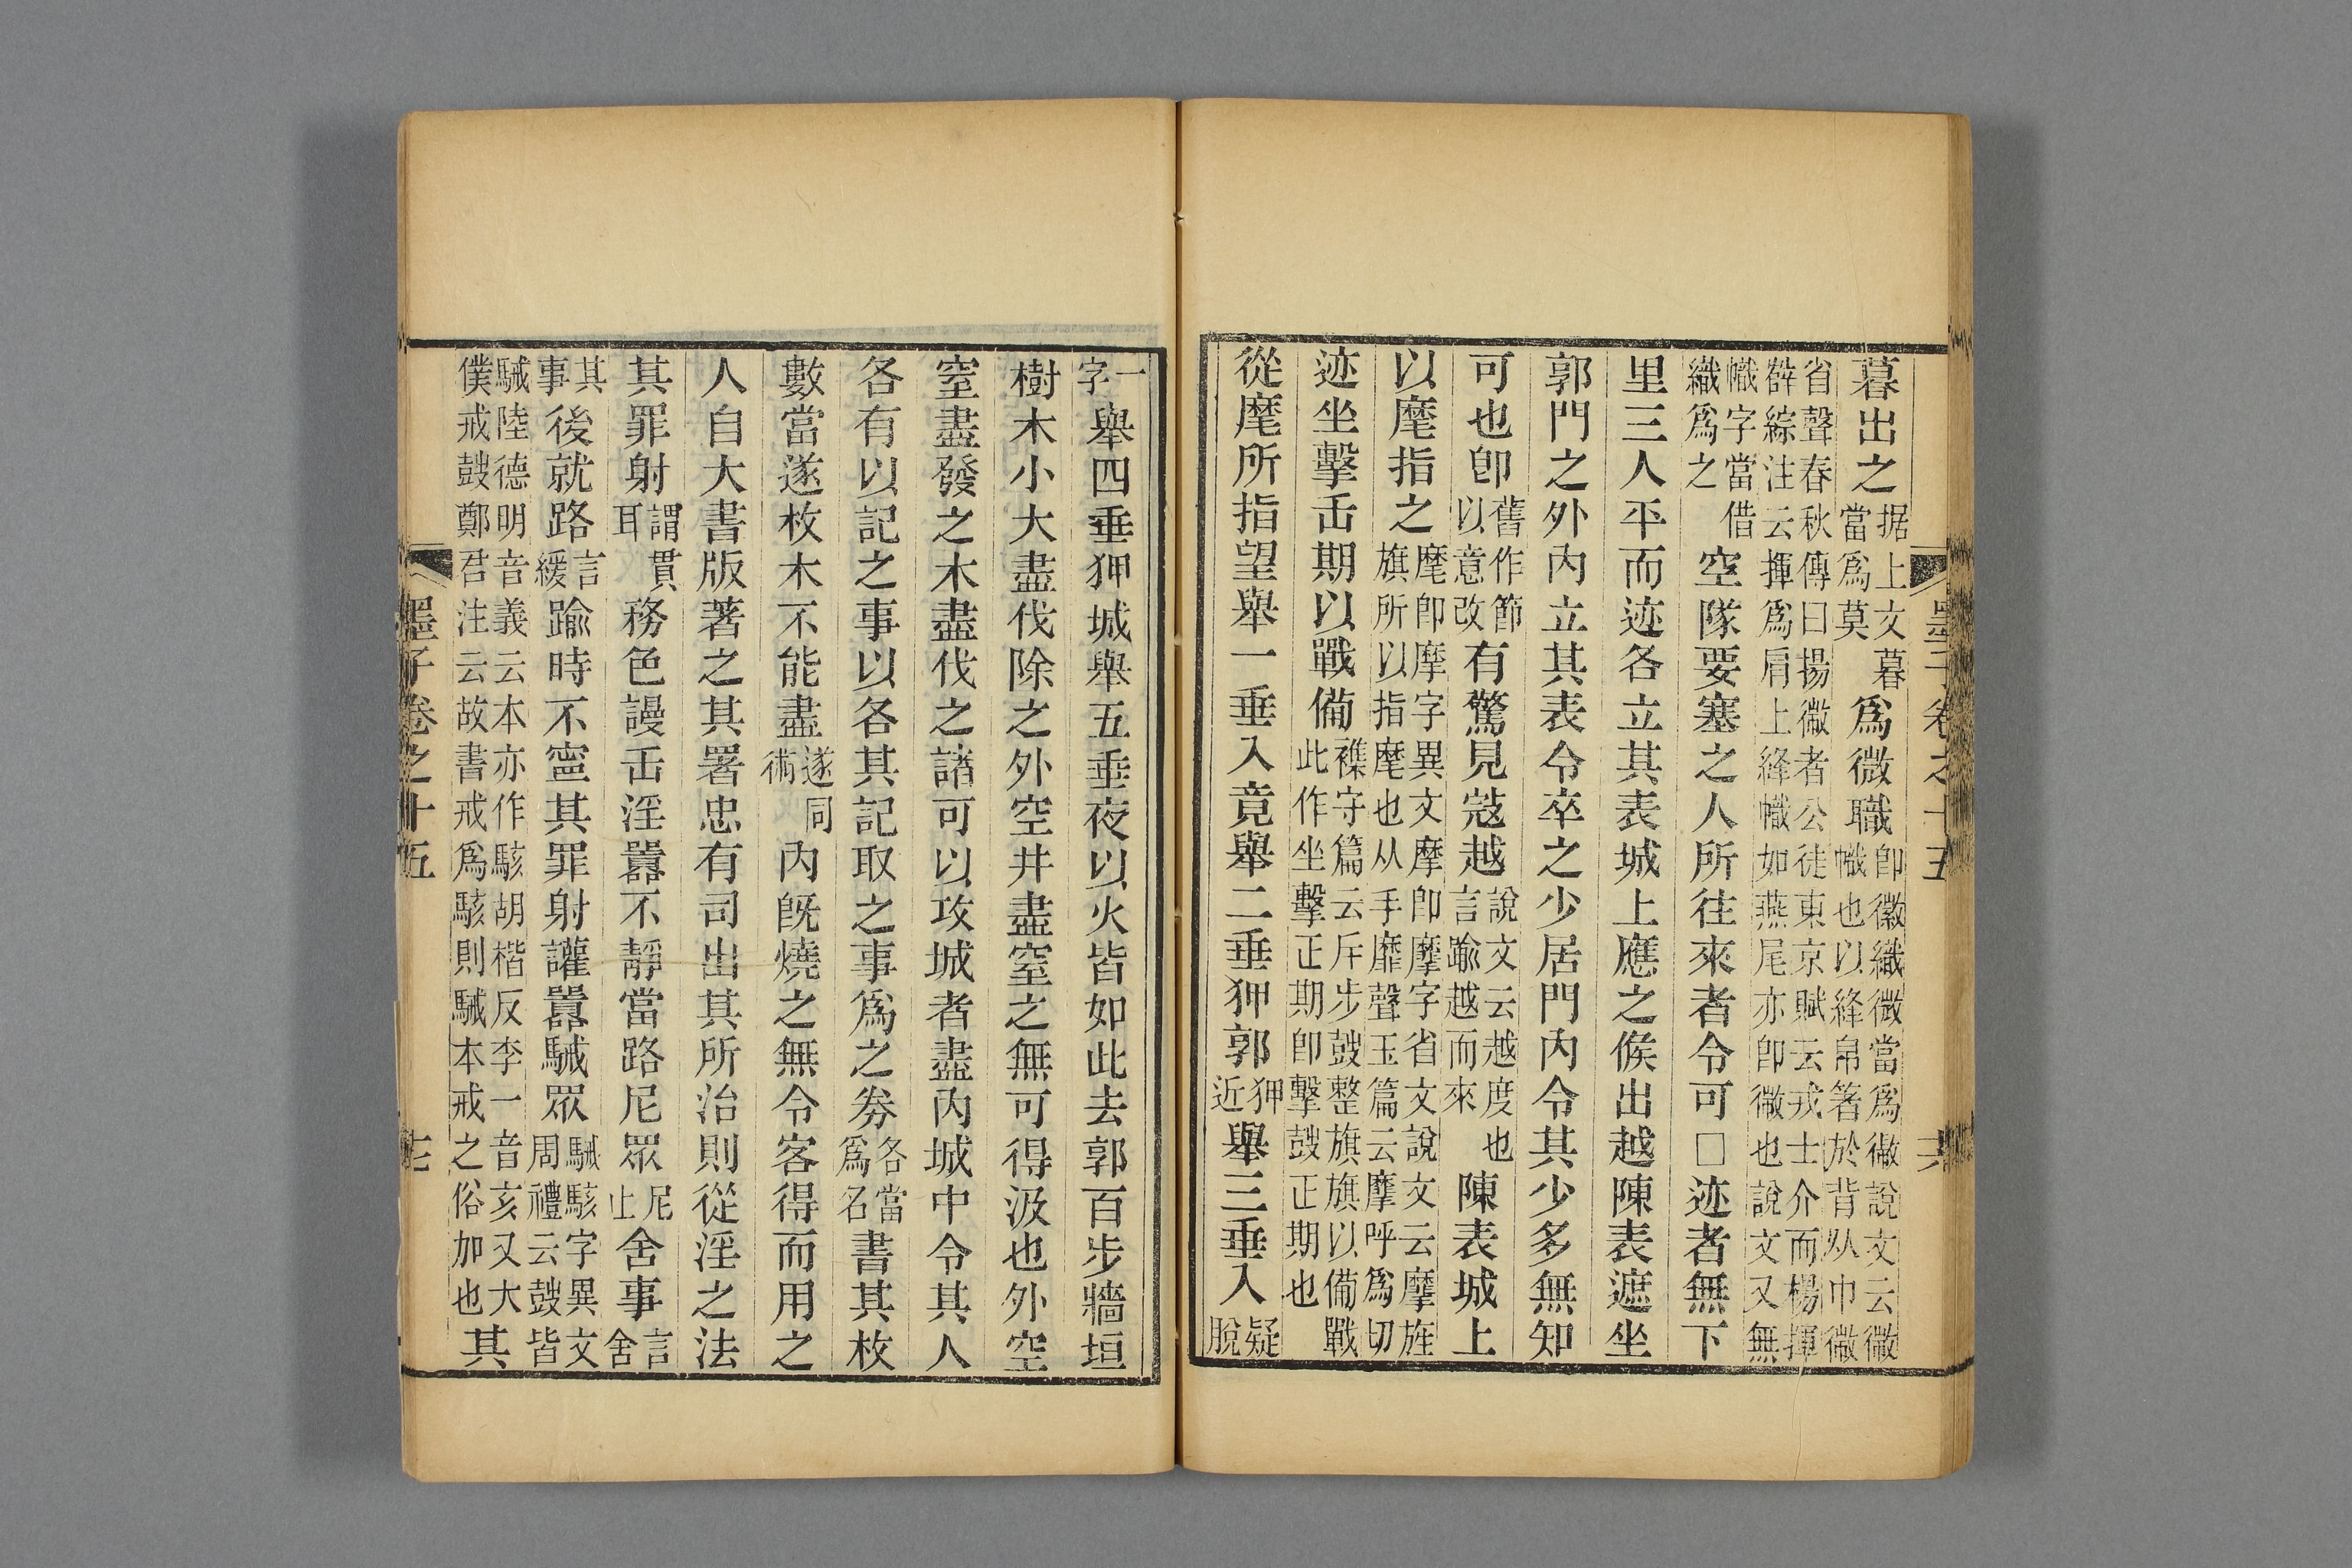 墨子卷之十五
十六
暮出之据上文暮當爲莫爲微職卽徽織微當爲徽說文云徽幟也以絳帛箸於背从巾微
省聲春秋傳曰揚徽者公徒東京賦云戎士介而楊揮薛綜注云揮爲肩上絳幟如燕尾亦卽徽也說文又無
幟字當借織爲之空隊要塞之人所往來者令可□迹者無下
里三人平而迹各立其表城上應之候出越陳表遮坐
郭門之外內立其表令卒之少居門內令其少多無知
可也卽舊作節以意改有驚見寇越說文云越度也言踰越而來陳表城上
以麾指之麾卽摩字異文摩卽摩字省文說文云摩旌旗所以指麾也从手靡聲玉篇云摩呼爲切
迹坐擊缶期以戰備襍守篇云斥步鼓整旗旗以備戰此作坐擊正期卽擊鼓正期也
從麾所指望舉一垂入竟舉二垂狎郭狎近舉三垂入疑脫
一字舉四垂狎城舉五垂夜以火皆如此去郭百步牆垣
樹木小大盡伐除之外空井盡窒之無可得汲也外空
窒盡發之木盡伐之諸可以攻城者盡內城中令其人
各有以記之事以各其記取之事爲之券各當爲名書其枚
數當遂枚木不能盡遂同術內旣燒之無令客得而用之
人自大書版著之其署忠有司出其所治則從淫之法
其罪射謂貫耳務色謾缶淫囂不靜當路尼眾尼止舍事言舍
其事後就路言緩踰時不寧其罪射讙囂駴眾駴駭字異文周禮云鼓皆
駴陸德明音義云本亦作駭胡楷反李一音亥又大僕戒鼓鄭君注云故書戒爲駭則駴本戒之俗加也其
墨子卷之十五
十七